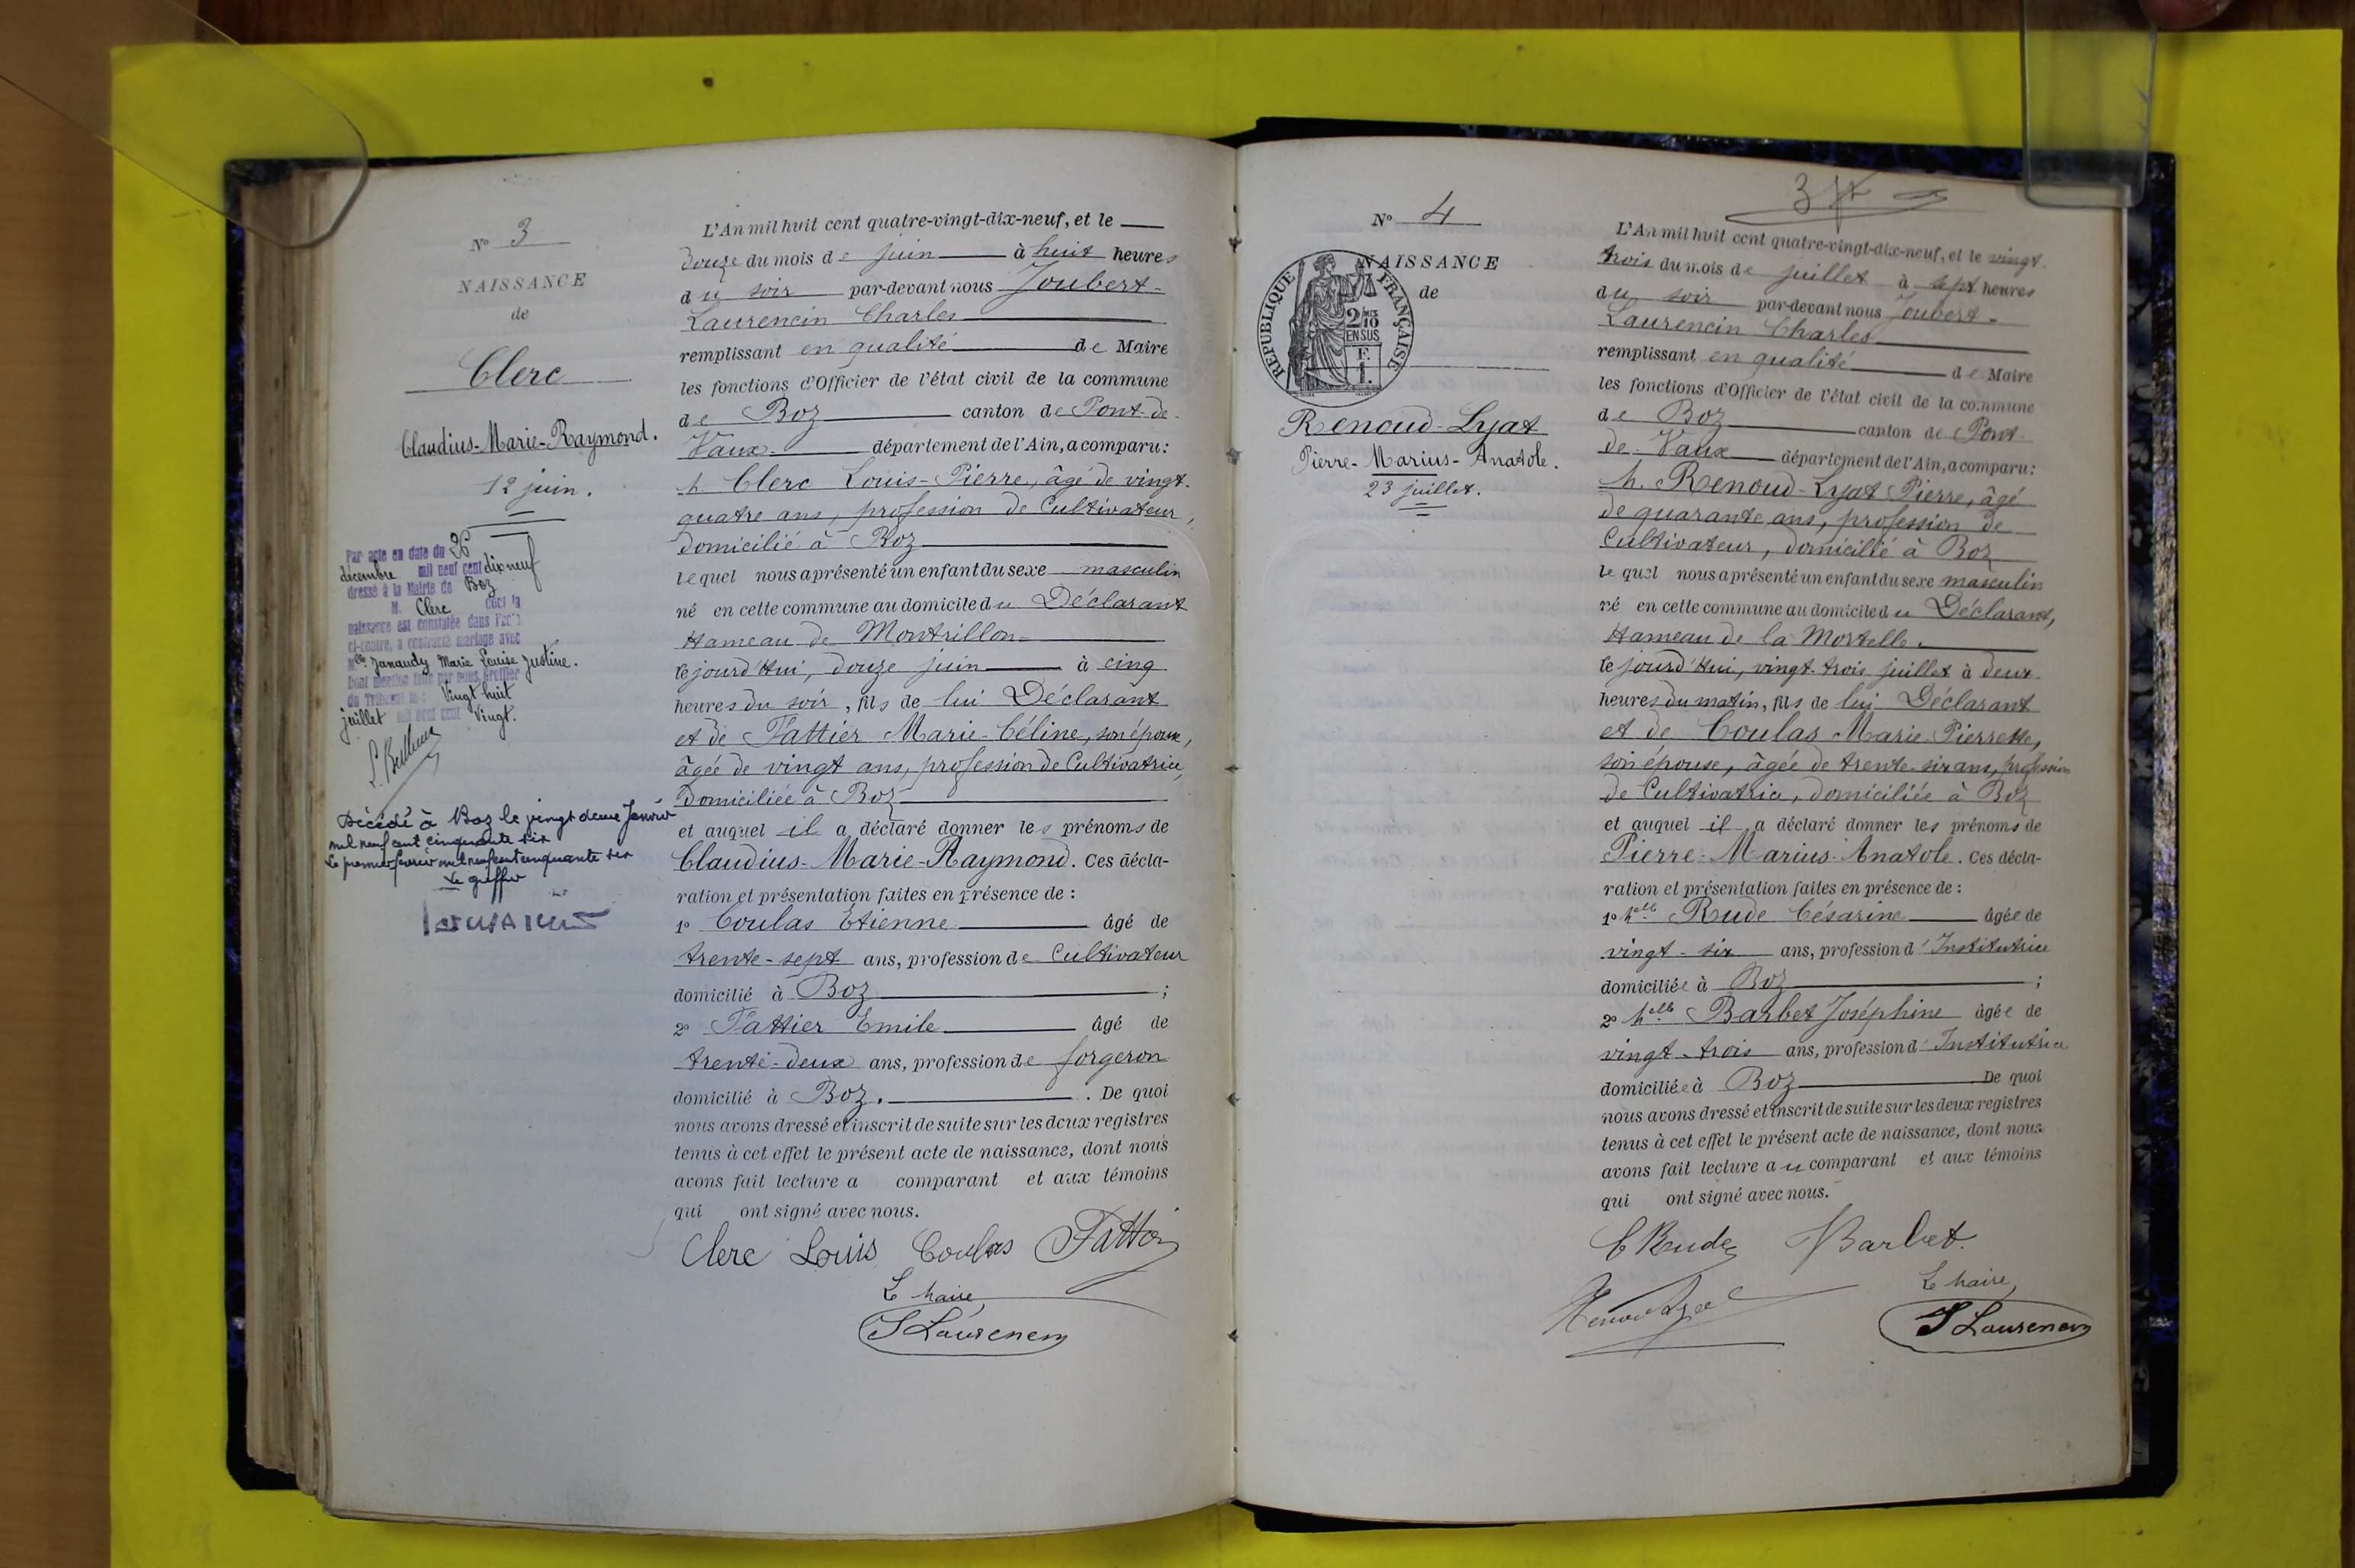 N° 3
NAISSANCE
de
Clerc
Claudius-Marie-Raymond.
12 juin.
Par acte en date du 26
décembre mil neuf cent dix neuf
dressé à la Mairie de Boz
M. Clerc dont la
naissance est constatée dans l'acte
ci-contre, a contracté mariage avec
Melle Janaudy Marie Louise Justine.
Dont mention faite par nous, Greffier
du Tribunal le: Vingt huit
juillet mil neuf cent Vingt.
Décédé à Boz le vingt deux Janvier
mil neuf cent cinquante six
Le premier février mil neuf cent cinquante six
Le greffier
L'An mil huit cent quatre-vingt-dix-neuf, et le
douze du mois de juin à huit heures
du soir par-devant nous Joubert-
Laurencin Charles
remplissant en qualité de Maire
les fonctions d'Officier de l'état civil de la commune
de Boz canton de Pont-de-
Vaux département de l'Ain, a comparu:
M. Clerc Louis-Pierre, âgé de vingt-
quatre ans, profession de Cultivateur,
domicilié à Boz
lequel nous a présenté un enfant du sexe masculin
né en cette commune au domicile du Déclarant
Hameau de Montrillon
le jourd'hui, douze juin à cinq
heures du soir, fils de lui Déclarant
et de Fattier Marie-Céline, son épouse,
âgée de vingt ans, profession de Cultivatrice,
domiciliée à Boz
et auquel il a déclaré donner les prénoms de
Claudius-Marie-Raymond. Ces décla-
ration et présentation faites en présence de :
1° Coulas Etienne âgé de
trente-sept ans, profession de Cultivateur
domicilié à Boz ;
2° Fattier Emile âgé de
trente-deux ans, profession de forgeron
domicilié à Boz. . De quoi
nous avons dressé et inscrit de suite sur les deux registres
tenus à cet effet le présent acte de naissance, dont nous
avons fait lecture a comparant et aux témoins
qui ont signé avec nous.
Clerc Louis Coulas Fattier
Le Maire,
J Laurencin
N° 4
NAISSANCE
de
RÉPUBLIQUE FRANÇAISE
2/10
EN SUS
Renoud-Lyat
Pierre-Marius-Anatole.
23 juillet.
L'An mil huit cent quatre-vingt-dix-neuf, et le vingt-
trois du mois de juillet à sept heures
du soir par-devant nous Joubert-
Laurencin Charles
remplissant en qualité de Maire
les fonctions d'Officier de l'état civil de la commune
de Boz canton de Pont-
de-Vaux département de l'Ain, a comparu:
M. Renoud-Lyat Pierre, âgé
de quarante ans, profession de
Cultivateur, domicilié à Boz
lequel nous a présenté un enfant du sexe masculin
né en cette commune au domicile du Déclarant,
Hameau de la Mortelle.
le jourd'hui, vingt-trois juillet à deux
heures du matin, fils de lui Déclarant
et de Coulas Marie-Pierrette,
son épouse, âgée de trente-six ans, profession
de Cultivatrice, domiciliée à Boz
et auquel il a déclaré donner les prénoms de
Pierre-Marius-Anatole. Ces décla-
ration et présentation faites en présence de :
1° Melle Rude Césarine âgée de
vingt-six ans, profession d'Institutrice
domiciliée à Boz ;
2° Melle Barbet Joséphine âgée de
vingt-trois ans, profession d'Institutrice
domiciliée à Boz De quoi
nous avons dressé et inscrit de suite sur les deux registres
tenus à cet effet le présent acte de naissance, dont nous
avons fait lecture au comparant et aux témoins
qui ont signé avec nous.
C Rude Barbet.
Le Maire,
J Laurencin